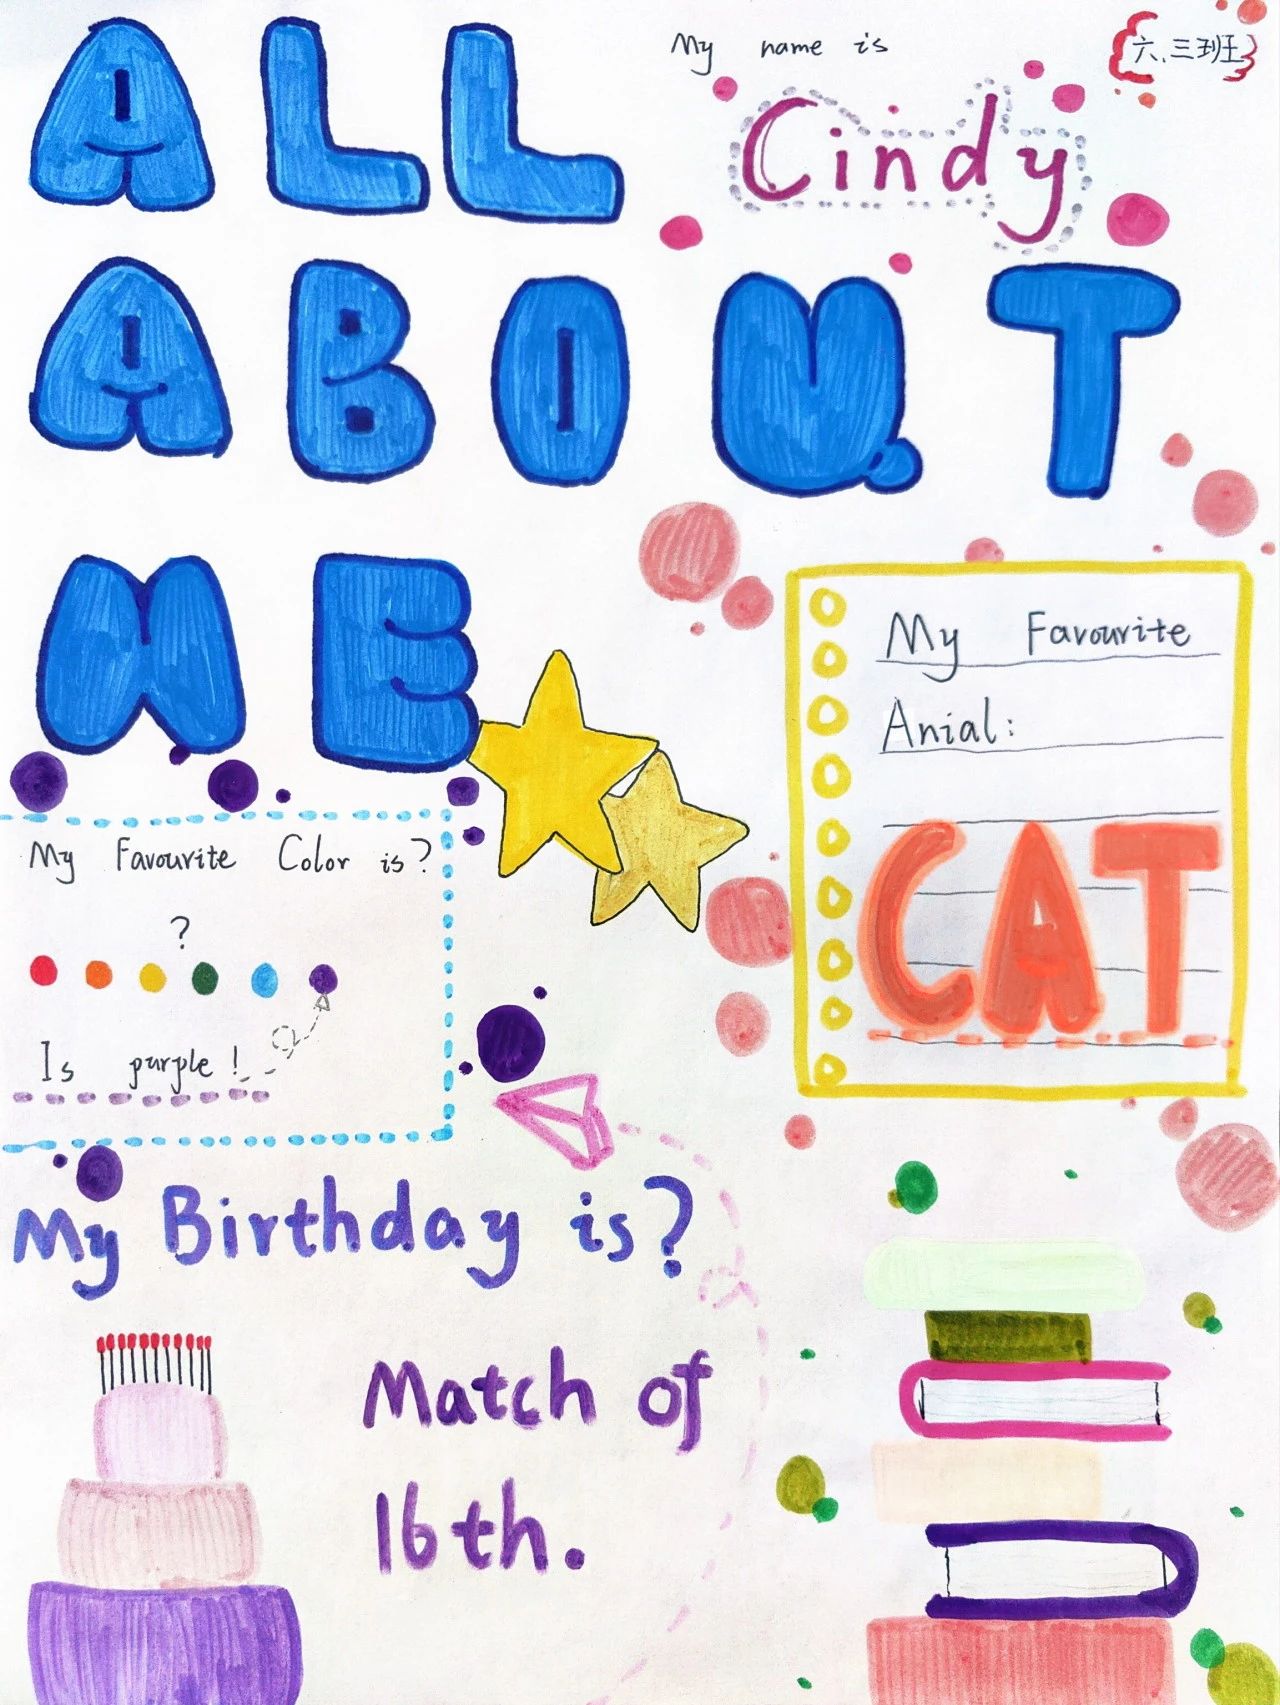 ALL
My name is
六、三班
Cindy
ABOUT
ME
My Favourite
Anial:
CAT
My Favourite Color is?
?
Is purple!
My Birthday is?
Match of
16th.